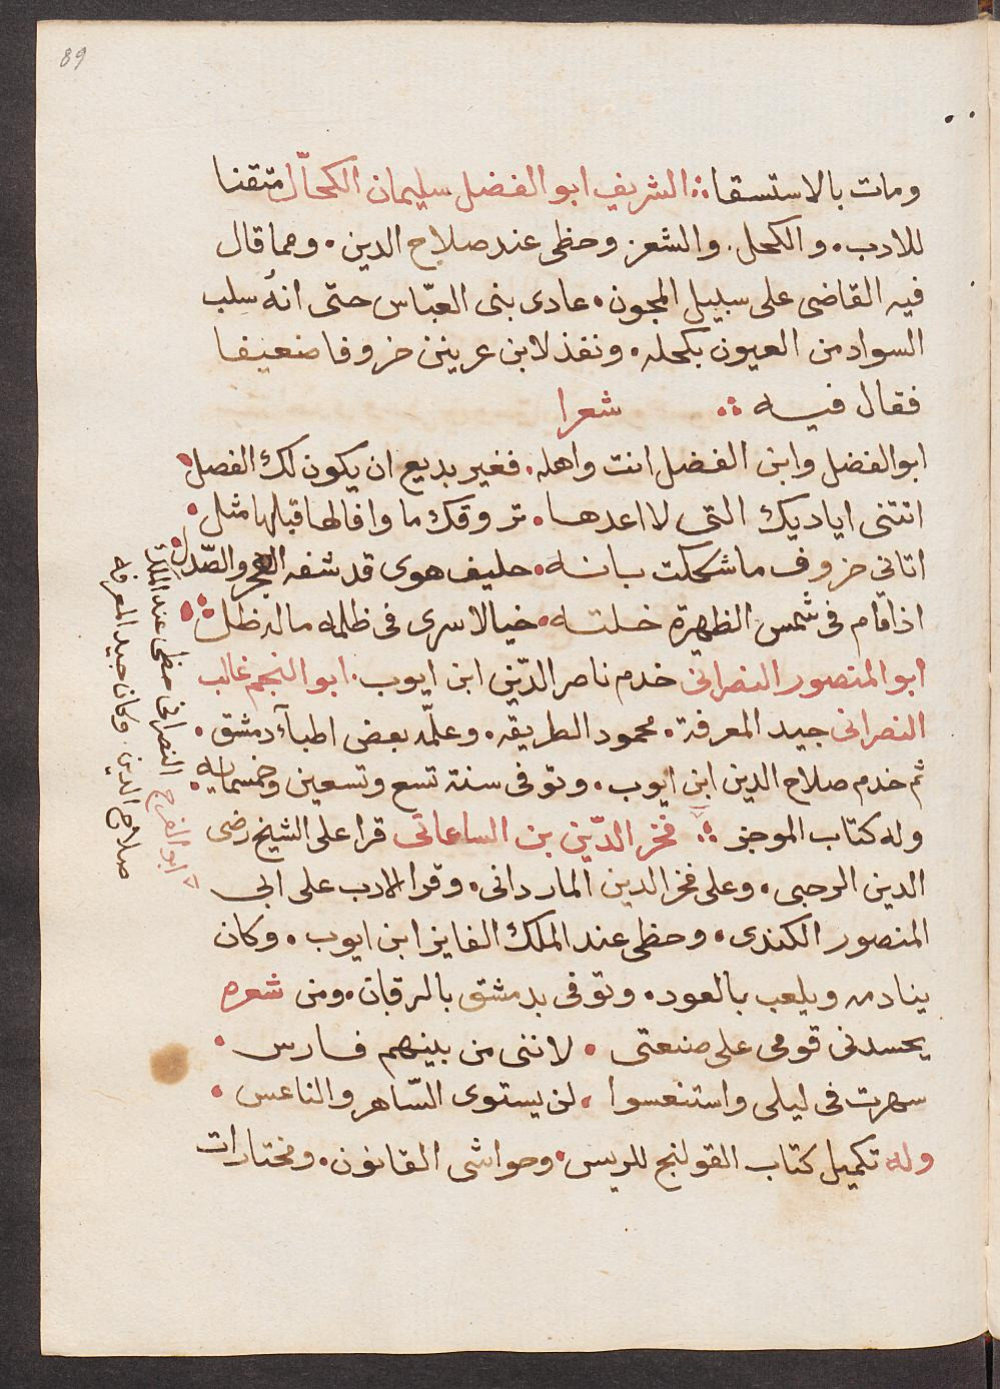 89
ومات بالاستسقا ∴ الشريف ابو الفضل سليمان الكحّال متقنا
للادب • والكحل • والشعر وحظى عند صلاح الدين • ومما قال
فيه القاضى على سبيل المجون • عادى بنى العبّاس حتى انهُ سلب
السواد من العيون بكحله • ونفذ لابن عرينن خروفا ضعيفا
فقال فيه ∴ شعرا
ابو الفضل وابن الفضل انت واهله • فغير بديع ان يكون لك الفصل •
اتتنى اياديك التى لا اعدها • تروقك ما وافا لها قبلها مثل •
اتانى خروف ما شككت بانه • حليف هوى قد شفه الهجر والصّدل •
اذا قام فى شمس الظهيرة خلته • خيالا سرى فى ظلمه ماله ظل ∴
ابو المنصور النصرانى خدم ناصر الدّين ابن ايوب • ابو النجم غالب
النصرانى جيد المعرفة • محمود الطريقه • وعلّمه بعض اطبآء دمشق •
ثم خدم صلاح الدين ابن ايوب • وتوفى سنة تسع وتسعين وخمسمايه •
وله كتاب الموجز ∴ فخر الدّين بن الساعاتى قرا على الشيخ رضى
الدين الرحبى • وعلى فخر الدين الماردانى • وقرا الادب على ابى
المنصور الكندى • وحظى عند الملك الفايز ابن ايوب • وكان
ينادمه ويلعب بالعود • وتوفى بدمشق باليرقان • ومن شعره
يحسدنى قومى على صنعتى • لاننى من بينهم فارس •
سهرت فى ليلى واستنعسوا • لن يستوى السّاهر والناعس •
وله تكميل كتاب القولنج للريس • وحواشى القانون • ومختارات
ابو الفرج النصرانى حظى عند الملك
صلاح الدين • وكان جيد المعرفه